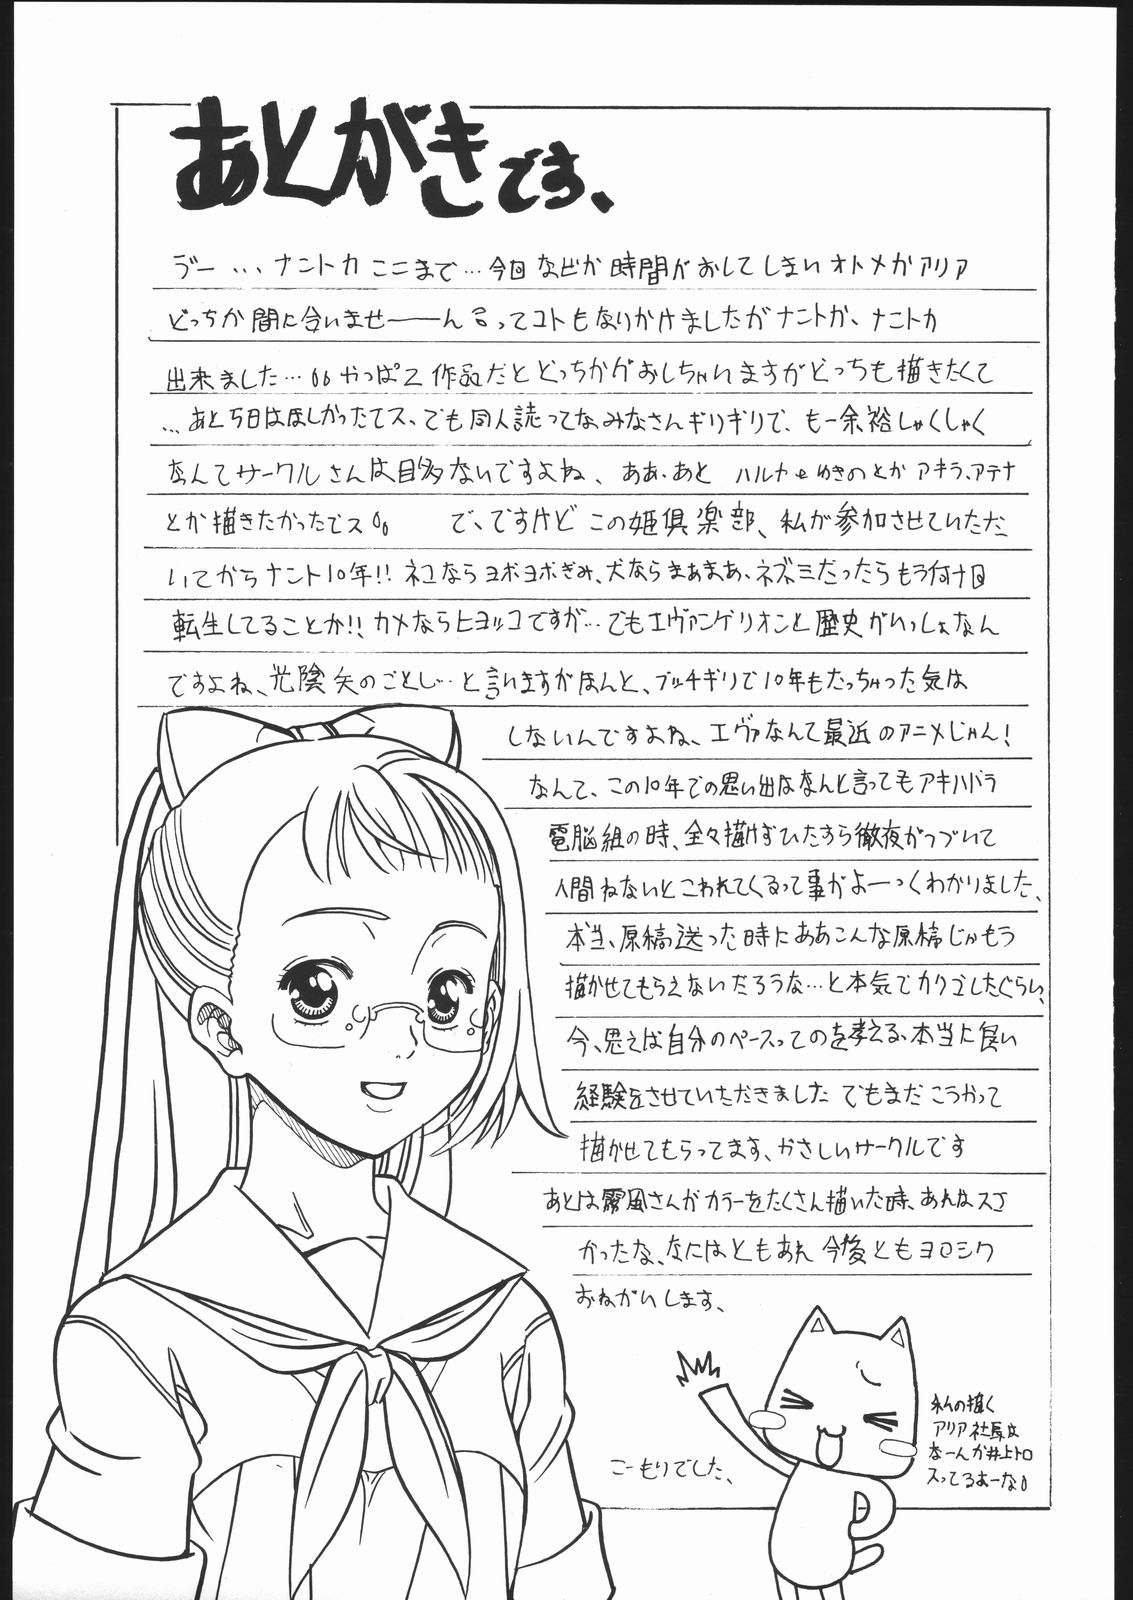 あとがきです、
デー …ナントカここまで…今回などか時間がおしてしまいオトメかアリア
どっちか間に合いませーーんるってコトもなりかけましたがナントか、ナニトカ
出来ました…。やっぱ2作品だとどっちかがおしちゃいますがどっちも描きたくて
…あと5日はほしかったてス、でも同人誌ってなみなさんギリギリで、も一余裕しゃくしゃく
なんてサークルさんは目多ないですよね、ああ、あと ハルナとゆきのとか アキラ、アテナ
とか描きたかったでス。 で、ですけど この姫倶楽部、私が参加させていただ
いてからナント10年!! ネコならヨボヨボぎみ、犬ならまぁまあ、ネズミだったらもう何十回
転生してることか!! カメならヒヨッコですが…でもエヴァンゲリオンと歴史がいっしょなん
ですよね、光陰矢のごとし…と言いますがほんと、ブッチギリで10年もたっちゃった気は
しないんですよね、エヴァなんて最近のアニメじゃん!
なんて、この10年での思い出はなんと言ってもアキハバラ
電脳組の時、全々描けずひたすら徹夜がつづいて
人間ねないとこわれてくるって事がよーっくわかりました、
本当、原稿送った時にああこんな原稿じゃもう
描かせてもらえないだろうな…と本気でカクゴしたぐらい、
今、思えば自分のペースってのを考える、本当に良い
経験をさせていただきました でもまだこうやって
描かせてもらってます、やさしいサークルです
あとは霧風さんがカラーをたくさん描いた時、あれはスゴ
かったな、なにはともあれ 今後ともヨロシク
おねがいします、
こーもりでした、
私の描く
アリア社長は
なーんか井上トロ
スってるよーな。